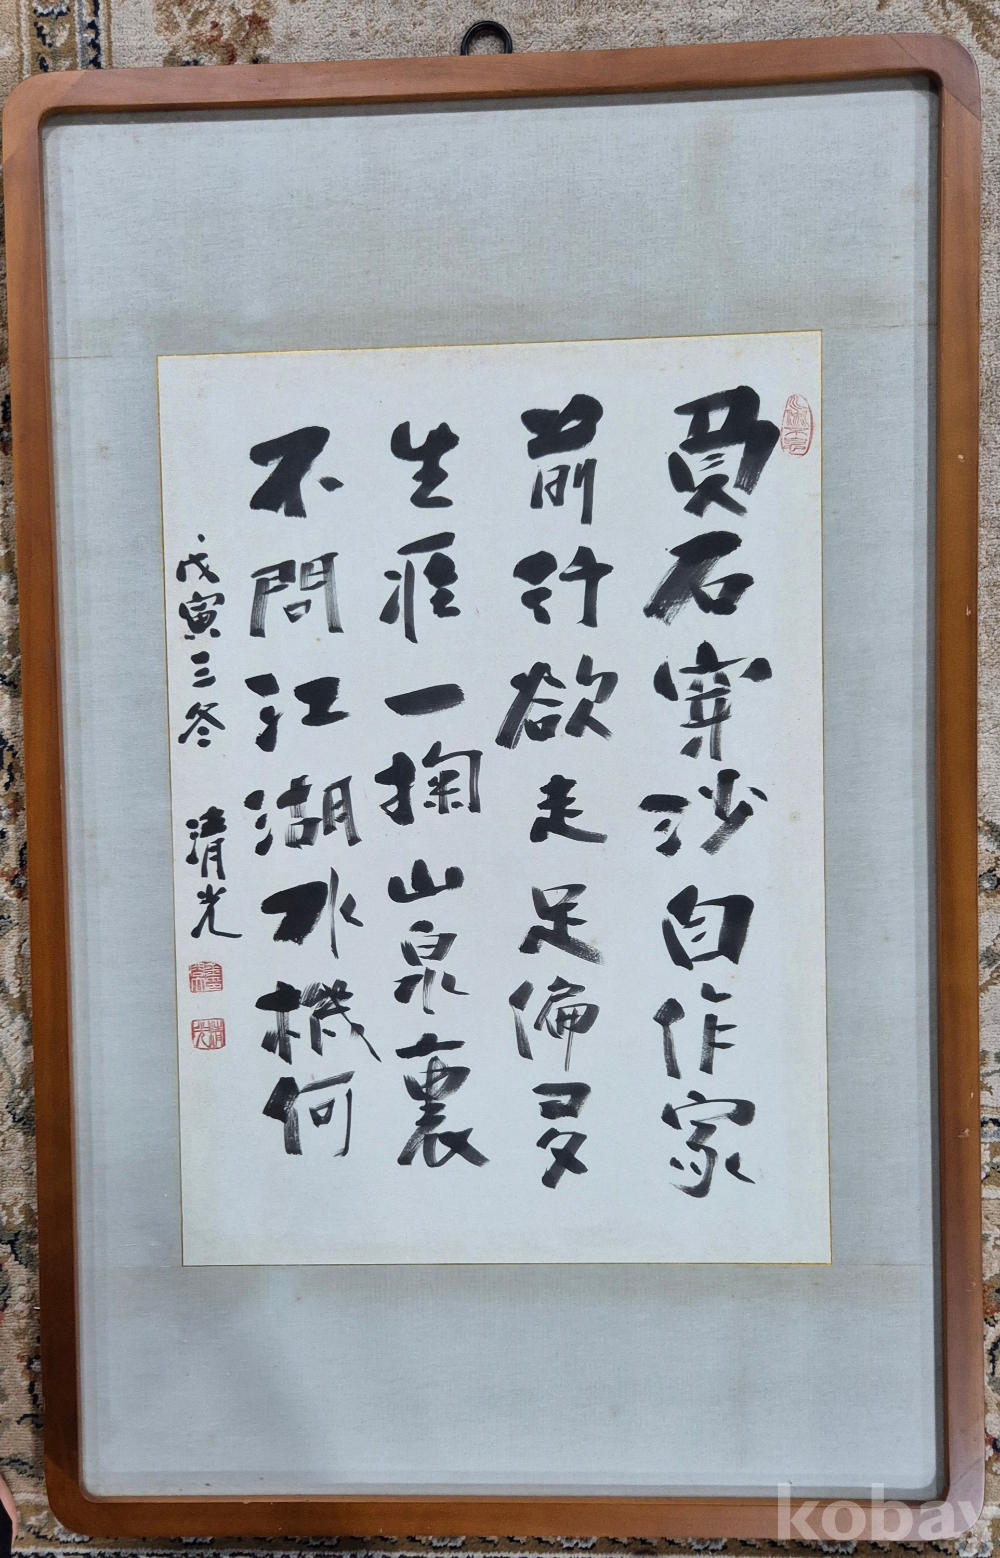 負石穿沙自作家
前行欲走足偏多
生涯一掬山泉裏
不問江湖水機何
戊寅三冬 清光
清光
kobay